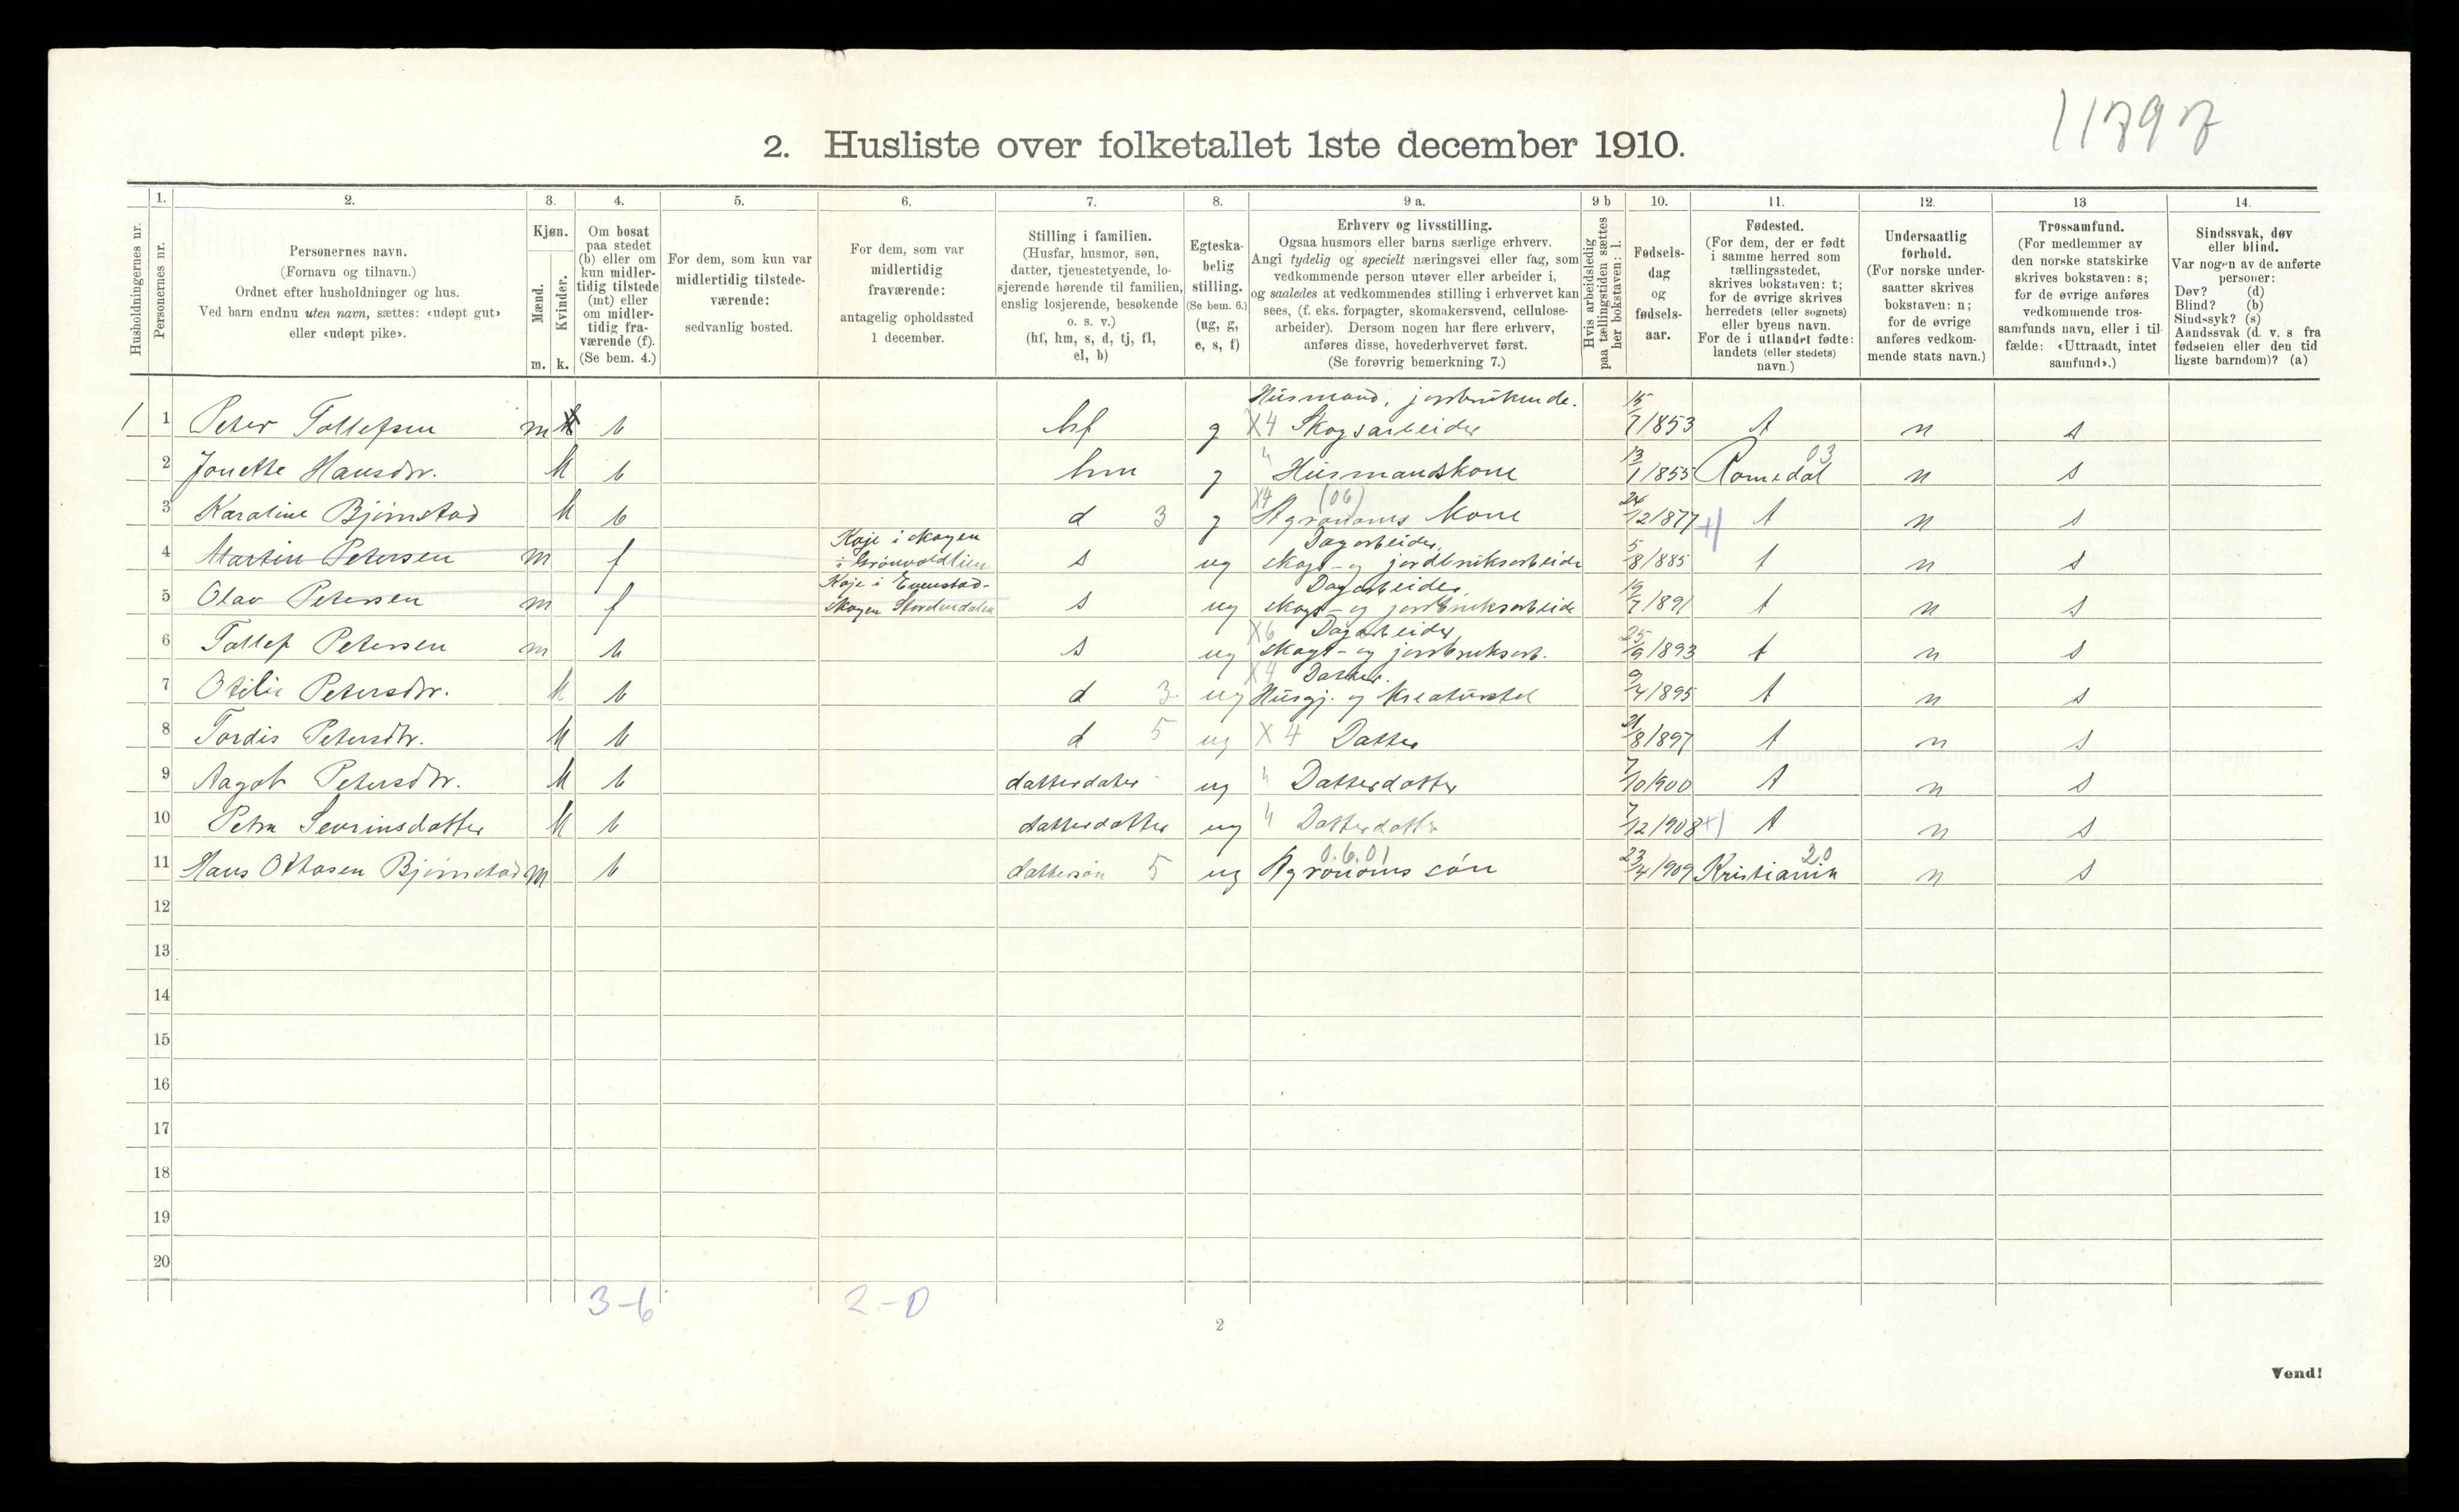 11797
2. Husliste over folketallet 1ste december 1910.
Husholdningernes nr.
1.
Personernes nr.
2.
Personernes navn.
(Fornavn og tilnavn.)
Ordnet efter husholdninger og hus.
Ved barn endnu uten navn, sættes: «udøpt gut»
eller «udøpt pike».
3.
Kjøn.
Mænd.
Kvinder.
m. k.
4.
Om bosat
paa stedet
(b) eller om
kun midler-
tidig tilstede
(mt) eller
om midler-
tidig fra-
værende (f).
(Se bem. 4.)
5.
For dem, som kun var
midlertidig tilstede-
værende:
sedvanlig bosted.
6.
For dem, som var
midlertidig
fraværende:
antagelig opholdssted
1 december.
7.
Stilling i familien.
(Husfar, husmor, søn,
datter, tjenestetyende, lo-
sjerende hørende til familien,
enslig losjerende, besøkende
o. s. v.)
(hf, hm, s, d, tj, fl,
el, b)
8.
Egteska-
belig
stilling.
(Se bem. 6.)
(ug, g,
e, s, f)
9 a.
Erhverv og livsstilling.
Ogsaa husmors eller barns særlige erhverv.
Angi tydelig og specielt næringsvei eller fag, som
vedkommende person utøver eller arbeider i,
og saaledes at vedkommendes stilling i erhvervet kan
sees, (f. eks. forpagter, skomakersvend, cellulose-
arbeider). Dersom nogen har flere erhverv,
anføres disse, hovederhvervet først.
(Se forøvrig bemerkning 7.)
9 b
Hvis arbeidsledig
paa tællingstiden sættes
her bokstaven: l.
10.
Fødsels-
dag
og
fødsels-
aar.
11.
Fødested.
(For dem, der er født
i samme herred som
tællingsstedet,
skrives bokstaven: t;
for de øvrige skrives
herredets (eller sognets)
eller byens navn.
For de i utlandet fødte:
landets (eller stedets)
navn.)
12.
Undersaatlig
forhold.
(For norske under-
saatter skrives
bokstaven: n;
for de øvrige
anføres vedkom-
mende stats navn.)
13
Trossamfund.
(For medlemmer av
den norske statskirke
skrives bokstaven: s;
for de øvrige anføres
vedkommende tros-
samfunds navn, eller i til-
fælde: «Uttraadt, intet
samfund».)
14.
Sindssvak, døv
eller blind.
Var nogen av de anførte
personer:
Døv? (d)
Blind? (b)
Sindssyk? (s)
Aandssvak (d. v. s fra
fødselen eller den tid
ligste barndom)? (a)
Husmand, jordbrukende.
1 1 Peter Tollefsen m b hf g X4 Skogsarbeider 15/7 1853 t n s
2 Jonette Hansdtr. k b hm g " Husmandskone 13/1 1855 Romedal 03 n s
3 Karoline Bjørnstad k b d 3 g X4 (06) Agronoms kone 24/12 1877 +) t n s
4 Martin Petersen m f Koje i skogen i Grönvoldlien s ug Dagarbeider, skogs- og jordbruksarbeide 5/8 1885 t n s
5 Olav Petersen m f Koje i Evenstad-skogen Storelvdalen s ug Dagarbeider, skogs- og jordbruksarbeide 19/7 1891 t n s
6 Tollef Petersen m b s ug X6 Dagarbeider, skogs- og jordbruksarb. 25/9 1893 t n s
7 Otilie Petersdtr. k b d 3 ug X4 Datter. Husgj. og kreaturstel 9/4 1895 t n s
8 Tordis Petersdtr. k b d 5 ug X 4 Datter 21/8 1897 t n s
9 Aagot Petersdtr. k b datterdater ug " Datterdatter 7/10 1900 t n s
10 Petra Sevrinsdatter k b datterdatter ug " Datterdattr 7/12 1908 +) t n s
11 Hans Ottosen Bjørnstad m b dattersøn 5 ug 0.6.01 Agronoms søn 23/4 1909 Kristiania 20 n s
12
13
14
15
16
17
18
19
20
3-6
2-0
2
Vend!